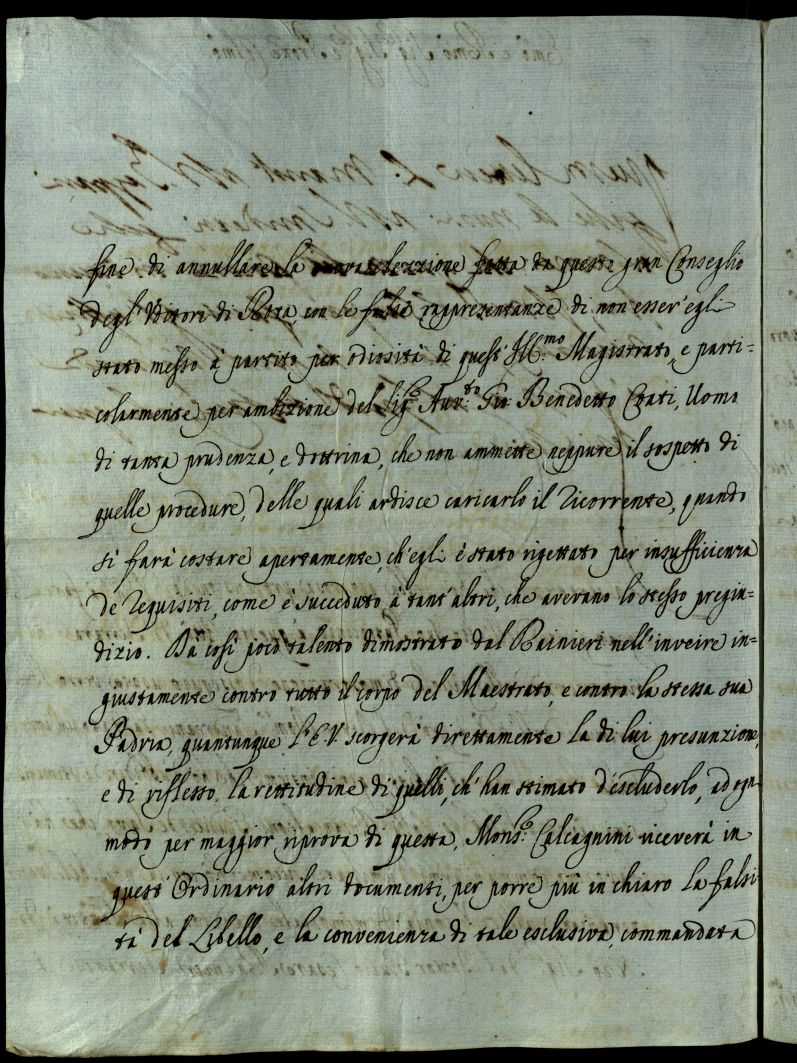 fine di annullare la nuova elezzione fatta da questo gran Conseglio
degl' Uditori di Rota, con le false rappresentanze di non esser' egli
stato messo à partito per odiosità di quest' Ill:mo Magistrato, e parti=
colarmente per ambizione del Sig:r Auv:to Gio: Benedetto Conti, Uomo
di tanta prudenza, e dottrina, che non ammette neppure il sospetto di
quelle procedure, delle quali ardisce caricarlo il Ricorrente, quando
si farà costare apertamente, ch' egli è stato rigettato per insufficienza
de' Requisiti, come è succeduto à tant' altri, che averano lo stesso pregiu=
dizio. Da così poco talento dimostrato dal Rainieri nell' inveire in=
giustamente contro tutto il corpo del Maestrato, e contro la stessa sua
Padria, quantunque l' E.V. scorgerà direttamente la di lui presunzione,
e di riflesso, la rettitudine di quelli, ch' han stimato d'escluderlo, ad ogn
modo per maggior riprova di questa, Mons:r Calcagnini riceverà in
quest' Ordinario altri documenti, per porre più in chiaro la falsi
tà del Libello, e la convenienza di tale esclusiva, commandata